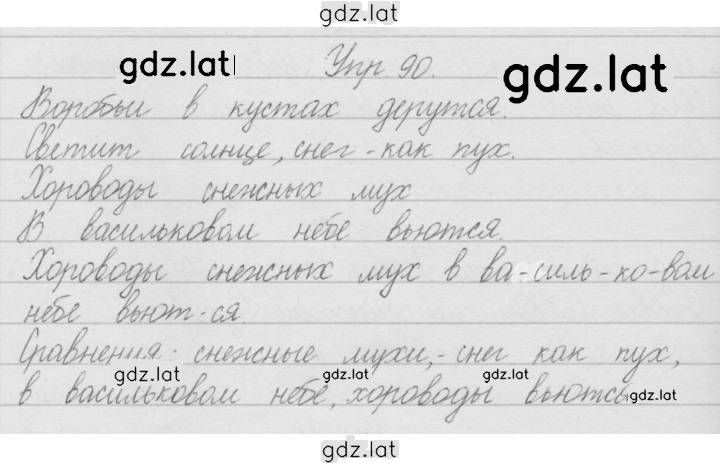 gdz.lat
gdz.lat
Упр. 90.
gdz.lat
Воробьи в кустах дерутся.
Светит солнце, снег - как пух.
Хороводы снежных мух
В васильковом небе вьются.
Хороводы снежных мух в ва-силь-ко-вом
небе вьют-ся.
Сравнения: снежные мухи, - снег как пух,
gdz.lat gdz.lat gdz.lat
в васильковом небе, хороводы вьются
gdz.lat
gdz.lat